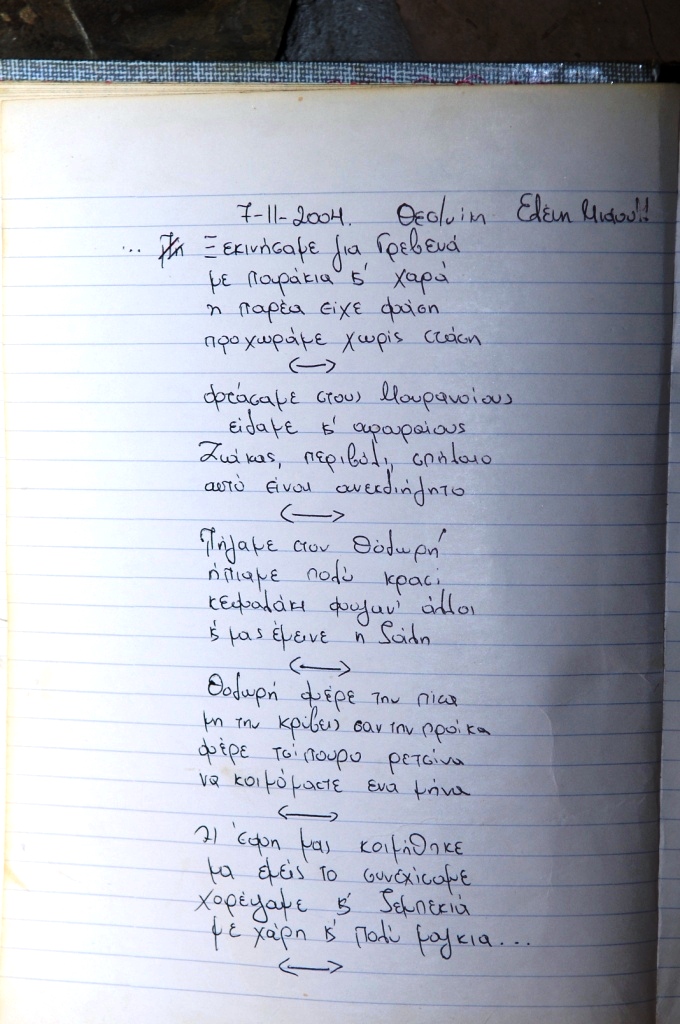 7-11-2004. Θεσ/νίκη Ελένη
... Ξεκινήσαμε για Γρεβενά
με παράκια κ' χαρά
η παρέα είχε φάση
προχωράμε χωρίς στάση
φτάσαμε στους Μαυραναίους
είδαμε κ' αραραίους
Ζιάκας, περιβόλι, σπήλαιο
αυτό είναι ανεκδιήγητο
Πήγαμε στον Θόδωρή
ήπιαμε πολύ κρασί
κεφαλάκι φαγαν' άλλοι
κ' μας έμεινε η ζάλη
Θοδωρή φέρε την πίτα
μη την κρίβεις σαν την προίκα
φέρε τσίπουρο ρετσίνα
να κοιμόμαστε ενα μήνα
Η έφη μας κοιμήθηκε
μα εμείς το συνεχίσαμε
χορέψαμε κ' ζεμπεκιά
με χάρη κ' πολύ μαγκια...